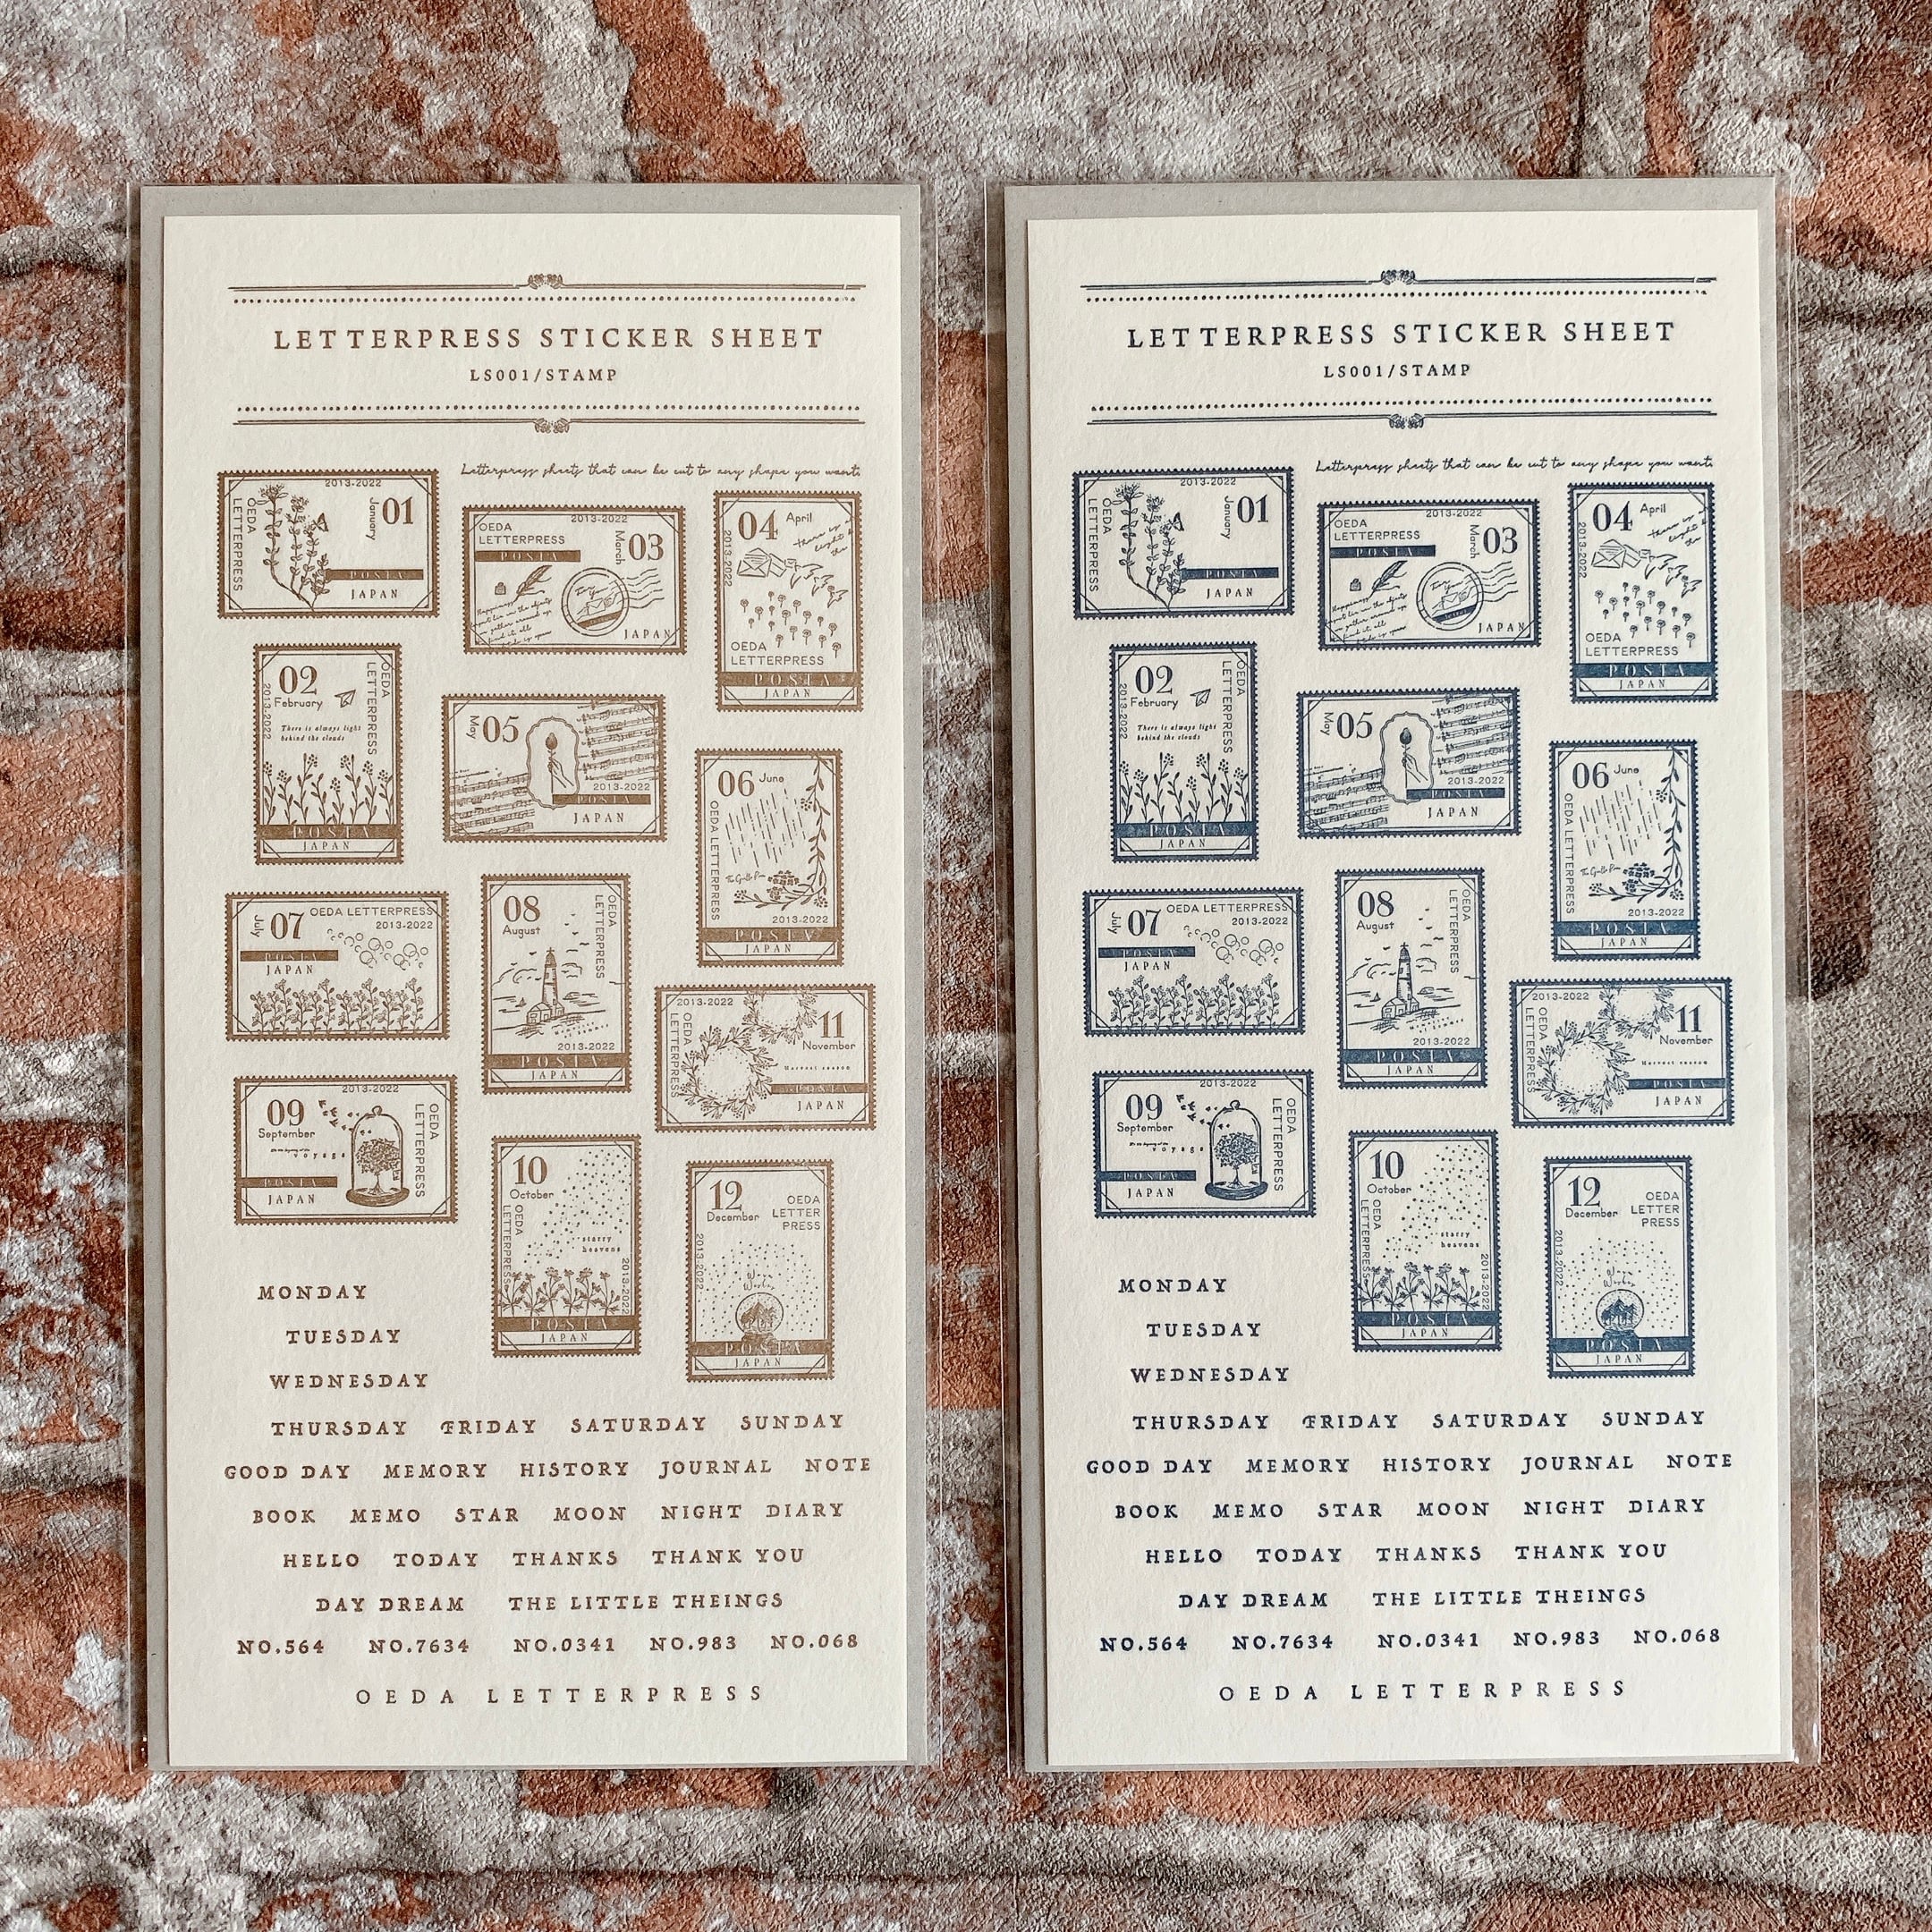 LETTERPRESS STICKER SHEET
LS001/STAMP
Letterpress sheets that can be cut to any shape you want.
2013-2022
OEDA
LETTERPRESS
January
01
POSTA
JAPAN
2013-2022
OEDA
LETTERPRESS
March
03
POSTA
JAPAN
04 April
2013-2022
OEDA
LETTERPRESS
POSTA
JAPAN
02
February
OEDA
LETTERPRESS
2013-2022
There is always light
behind the clouds
POSTA
JAPAN
May
05
2013-2022
POSTA
JAPAN
06 June
OEDA LETTERPRESS
2013-2022
POSTA
JAPAN
July
07
OEDA LETTERPRESS
2013-2022
POSTA
JAPAN
08
August
OEDA
LETTERPRESS
2013-2022
POSTA
JAPAN
2013-2022
OEDA
LETTERPRESS
11
November
Harvest season
POSTA
JAPAN
2013-2022
09
September
OEDA
LETTERPRESS
voyage
POSTA
JAPAN
10
October
OEDA
LETTERPRESS
starry
heavens
2013-2022
POSTA
JAPAN
12
December
OEDA
LETTER
PRESS
2013-2022
POSTA
JAPAN
MONDAY
TUESDAY
WEDNESDAY
THURSDAY FRIDAY SATURDAY SUNDAY
GOOD DAY MEMORY HISTORY JOURNAL NOTE
BOOK MEMO STAR MOON NIGHT DIARY
HELLO TODAY THANKS THANK YOU
DAY DREAM THE LITTLE THEINGS
NO.564 NO.7634 NO.0341 NO.983 NO.068
OEDA LETTERPRESS
LETTERPRESS STICKER SHEET
LS001/STAMP
Letterpress sheets that can be cut to any shape you want.
2013-2022
OEDA
LETTERPRESS
January
01
POSTA
JAPAN
2013-2022
OEDA
LETTERPRESS
March
03
POSTA
JAPAN
04 April
2013-2022
OEDA
LETTERPRESS
POSTA
JAPAN
02
February
OEDA
LETTERPRESS
2013-2022
There is always light
behind the clouds
POSTA
JAPAN
May
05
2013-2022
POSTA
JAPAN
06 June
OEDA LETTERPRESS
2013-2022
POSTA
JAPAN
July
07
OEDA LETTERPRESS
2013-2022
POSTA
JAPAN
08
August
OEDA
LETTERPRESS
2013-2022
POSTA
JAPAN
2013-2022
OEDA
LETTERPRESS
11
November
Harvest season
POSTA
JAPAN
2013-2022
09
September
OEDA
LETTERPRESS
voyage
POSTA
JAPAN
10
October
OEDA
LETTERPRESS
starry
heavens
2013-2022
POSTA
JAPAN
12
December
OEDA
LETTER
PRESS
2013-2022
POSTA
JAPAN
MONDAY
TUESDAY
WEDNESDAY
THURSDAY FRIDAY SATURDAY SUNDAY
GOOD DAY MEMORY HISTORY JOURNAL NOTE
BOOK MEMO STAR MOON NIGHT DIARY
HELLO TODAY THANKS THANK YOU
DAY DREAM THE LITTLE THEINGS
NO.564 NO.7634 NO.0341 NO.983 NO.068
OEDA LETTERPRESS